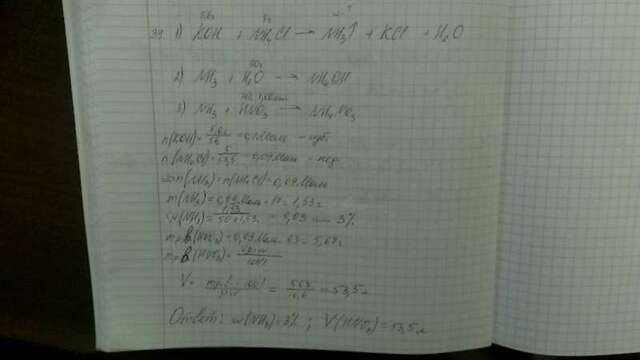 5,6г 5г ω-?
39. 1) KOH + NH₄Cl → NH₃↑ + KCl + H₂O
50г
2) NH₃ + H₂O → NH₄OH
3) NH₃ + HNO₃ → NH₄NO₃
n(KOH) = 5,6г/56 = 0,1моль — изб.
n(NH₄Cl) = 5/53,5 = 0,09моль — нед.
n(NH₃) = n(NH₄Cl) = 0,09моль
m(NH₃) = 0,09моль · 17 = 1,53г
ω(NH₃) = 1,53/50+1,53 = 0,03 или 3%
m р.в.(HNO₃) = 0,09моль · 63 = 5,67г
m р.в.(HNO₃) =
V = m р.в. · 100% = = 53,5л
Ответ: ω(NH₃) = 3% ; V(HNO₃) = 53,5л